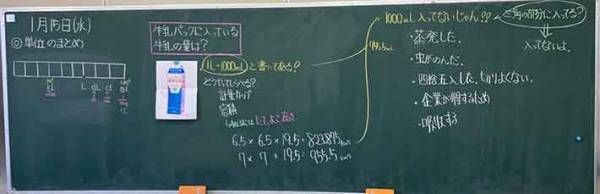 1月15日(水)
◎単位のまとめ
L dL cL mL
牛乳パックに入っている
牛乳の量は？
1L=1000mL と書いてある？
どうやってしらべる？
計量カップ
容積
たて×よこ×高さ
6.5×6.5×19.5=823.875
7×7×19.5=955.5
1000mL入ってないじゃん？？
三角の部分に入ってる？
入ってないよ。
・蒸発した。
・虫がのんだ。
・四捨五入した。キリよくない。
・企業が得するため
・吸収する